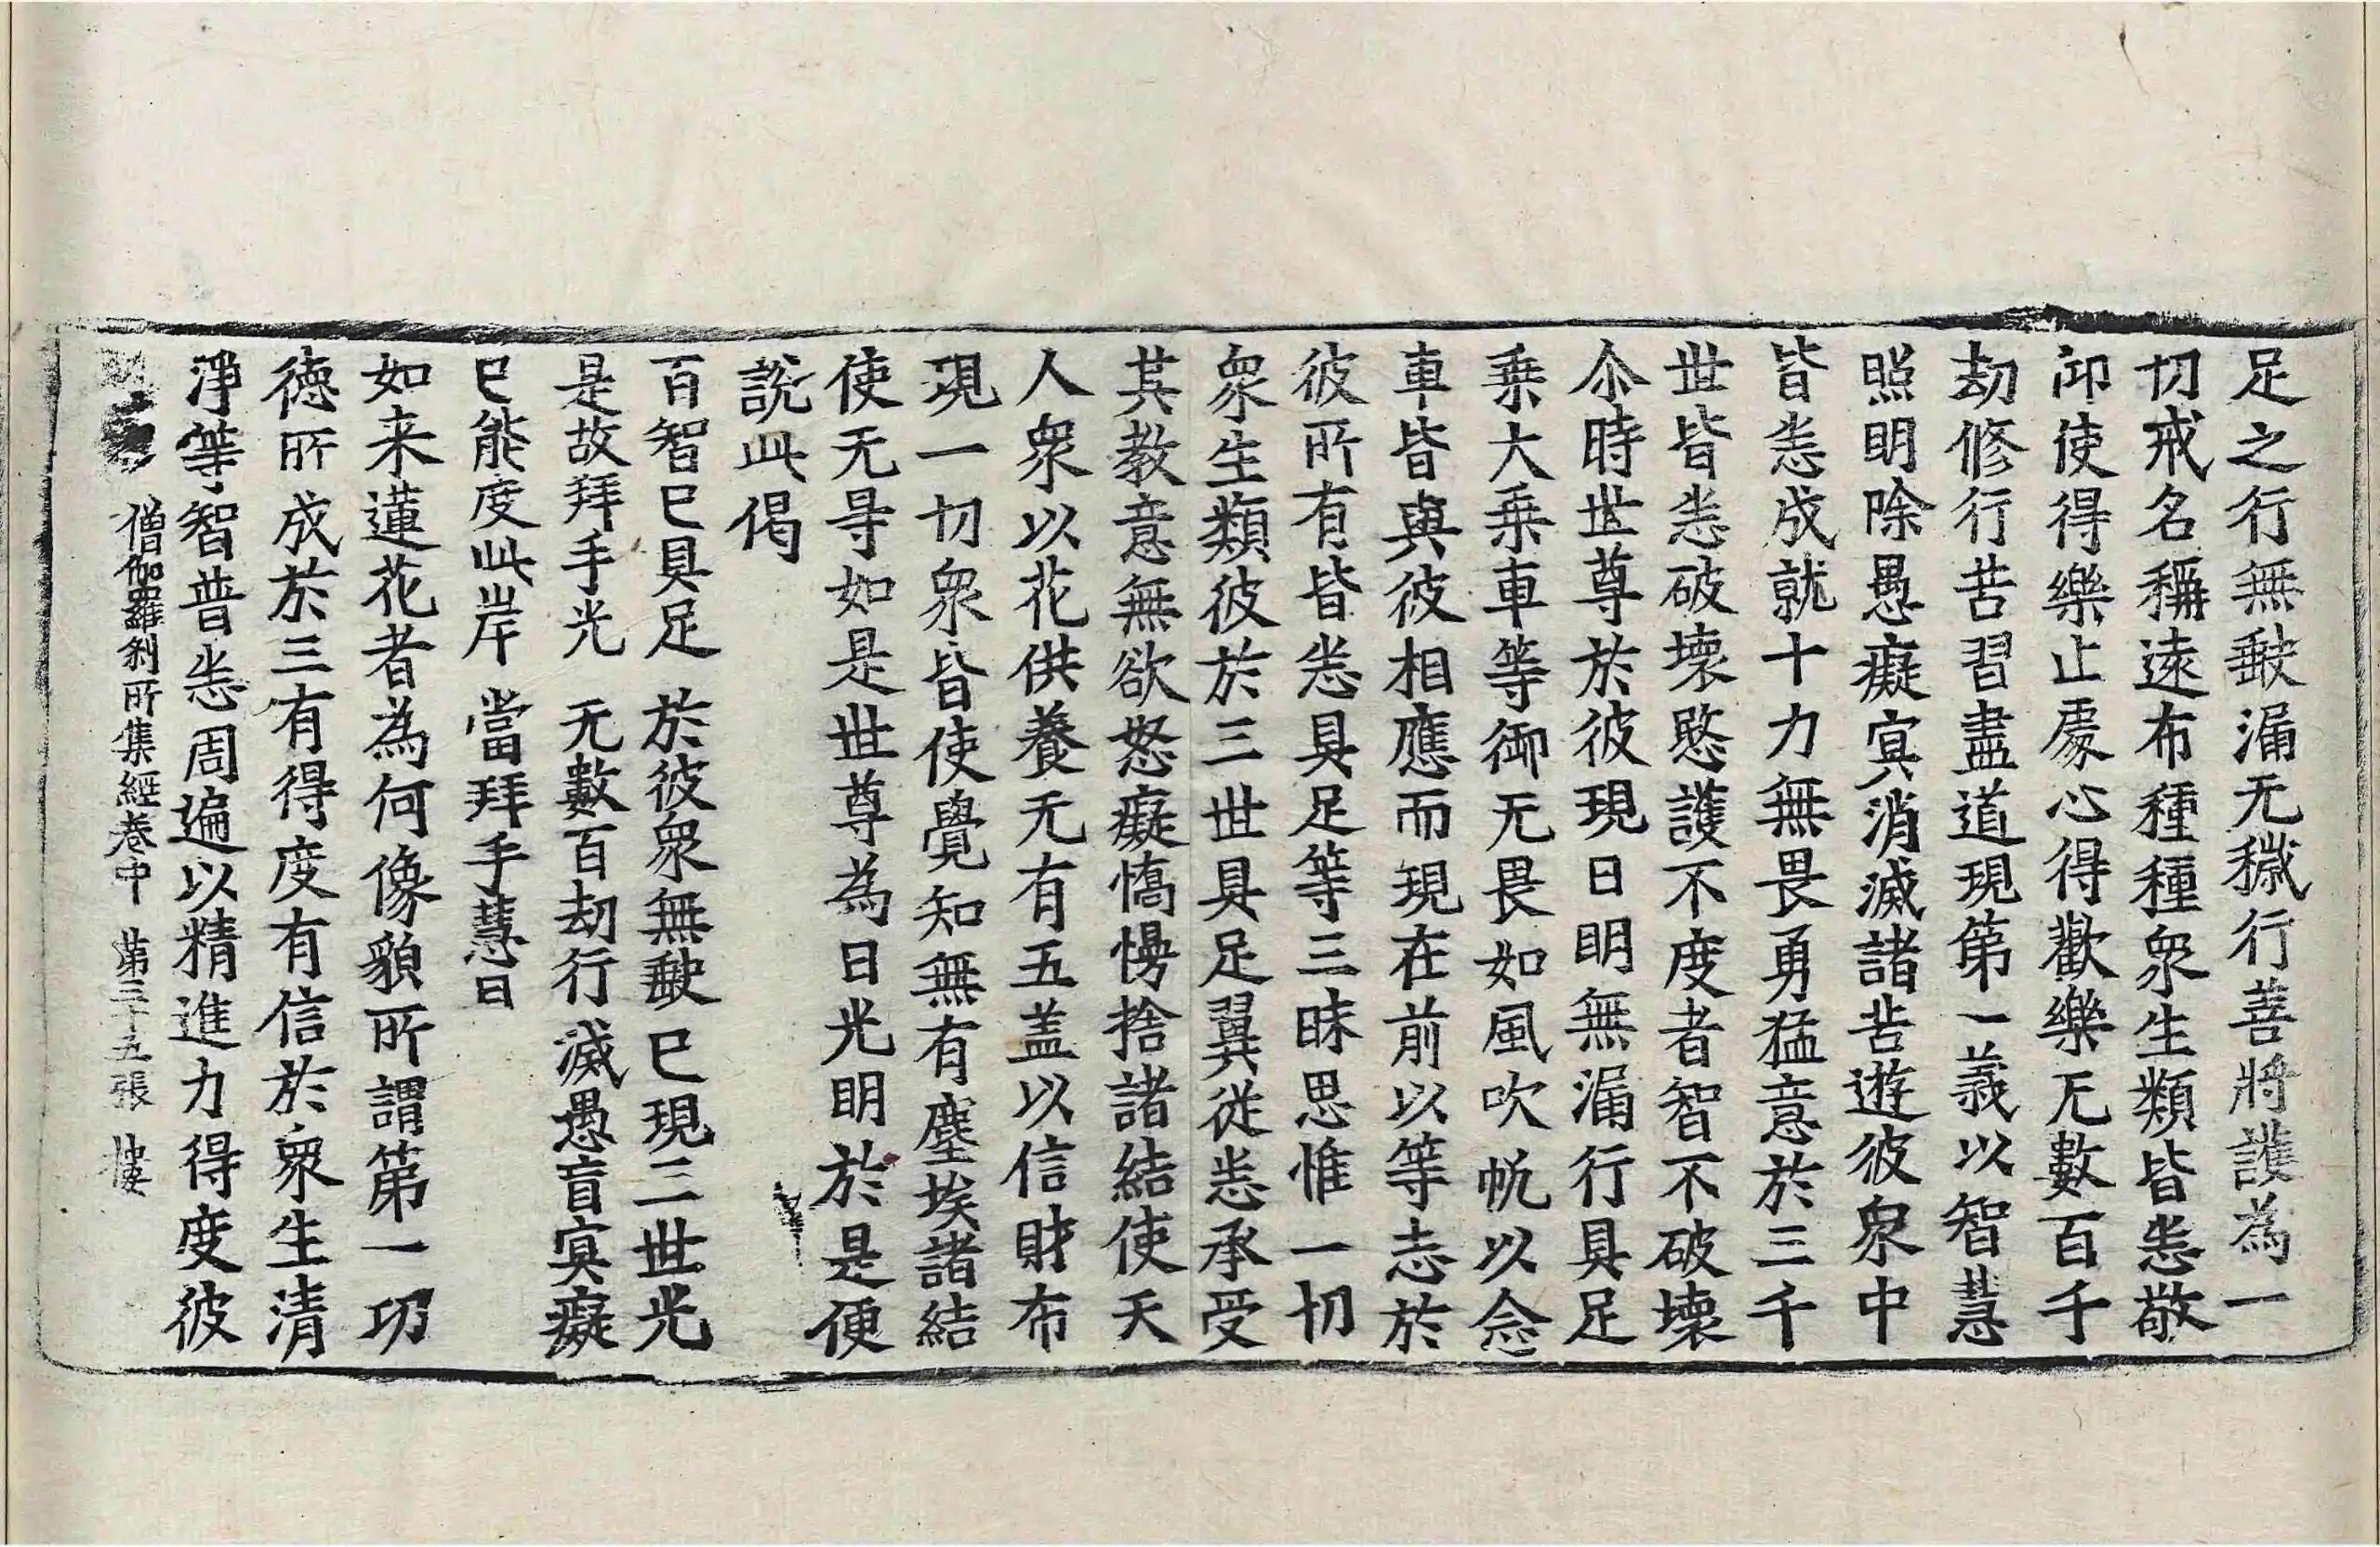 足之行無缺漏无穢行善將護為一
切戒名稱遠布種種衆生類皆悉敬
仰使得樂止處心得歡樂无數百千
劫修行苦習盡道現第一義以智慧
照明除愚癡寘消滅諸苦遊彼衆中
皆悉成就十力無畏勇猛意於三千
世皆悉破壞愍護不度者智不破壞
尒時世尊於彼現日明無漏行具足
乘大乘車等御无畏如風吹帆以念
車皆與彼相應而現在前以等志於
彼所有皆悉具足等三昧思惟一切
衆生類彼於三世具足翼從悉承受
其教意無欲怒癡憍慢捨諸結使天
人衆以花供養无有五盖以信財布
現一切衆皆使覺知無有塵埃諸結
使无㝵如是世尊為日光明於是便
說此偈
百智已具足 於彼衆無缺 已現三世光
是故拜手光 无數百劫行 滅愚盲寘癡
已能度此岸 當拜手慧日
如来蓮花者為何像貌所謂第一功
德所成於三有得度有信於衆生清
淨等智普悉周遍以精進力得度彼
僧伽羅刹所集經卷中 第三十五張 樓